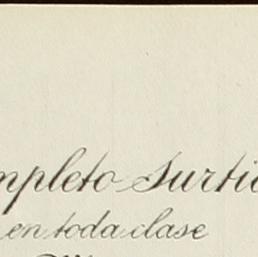 mpleto Surti
en toda clase